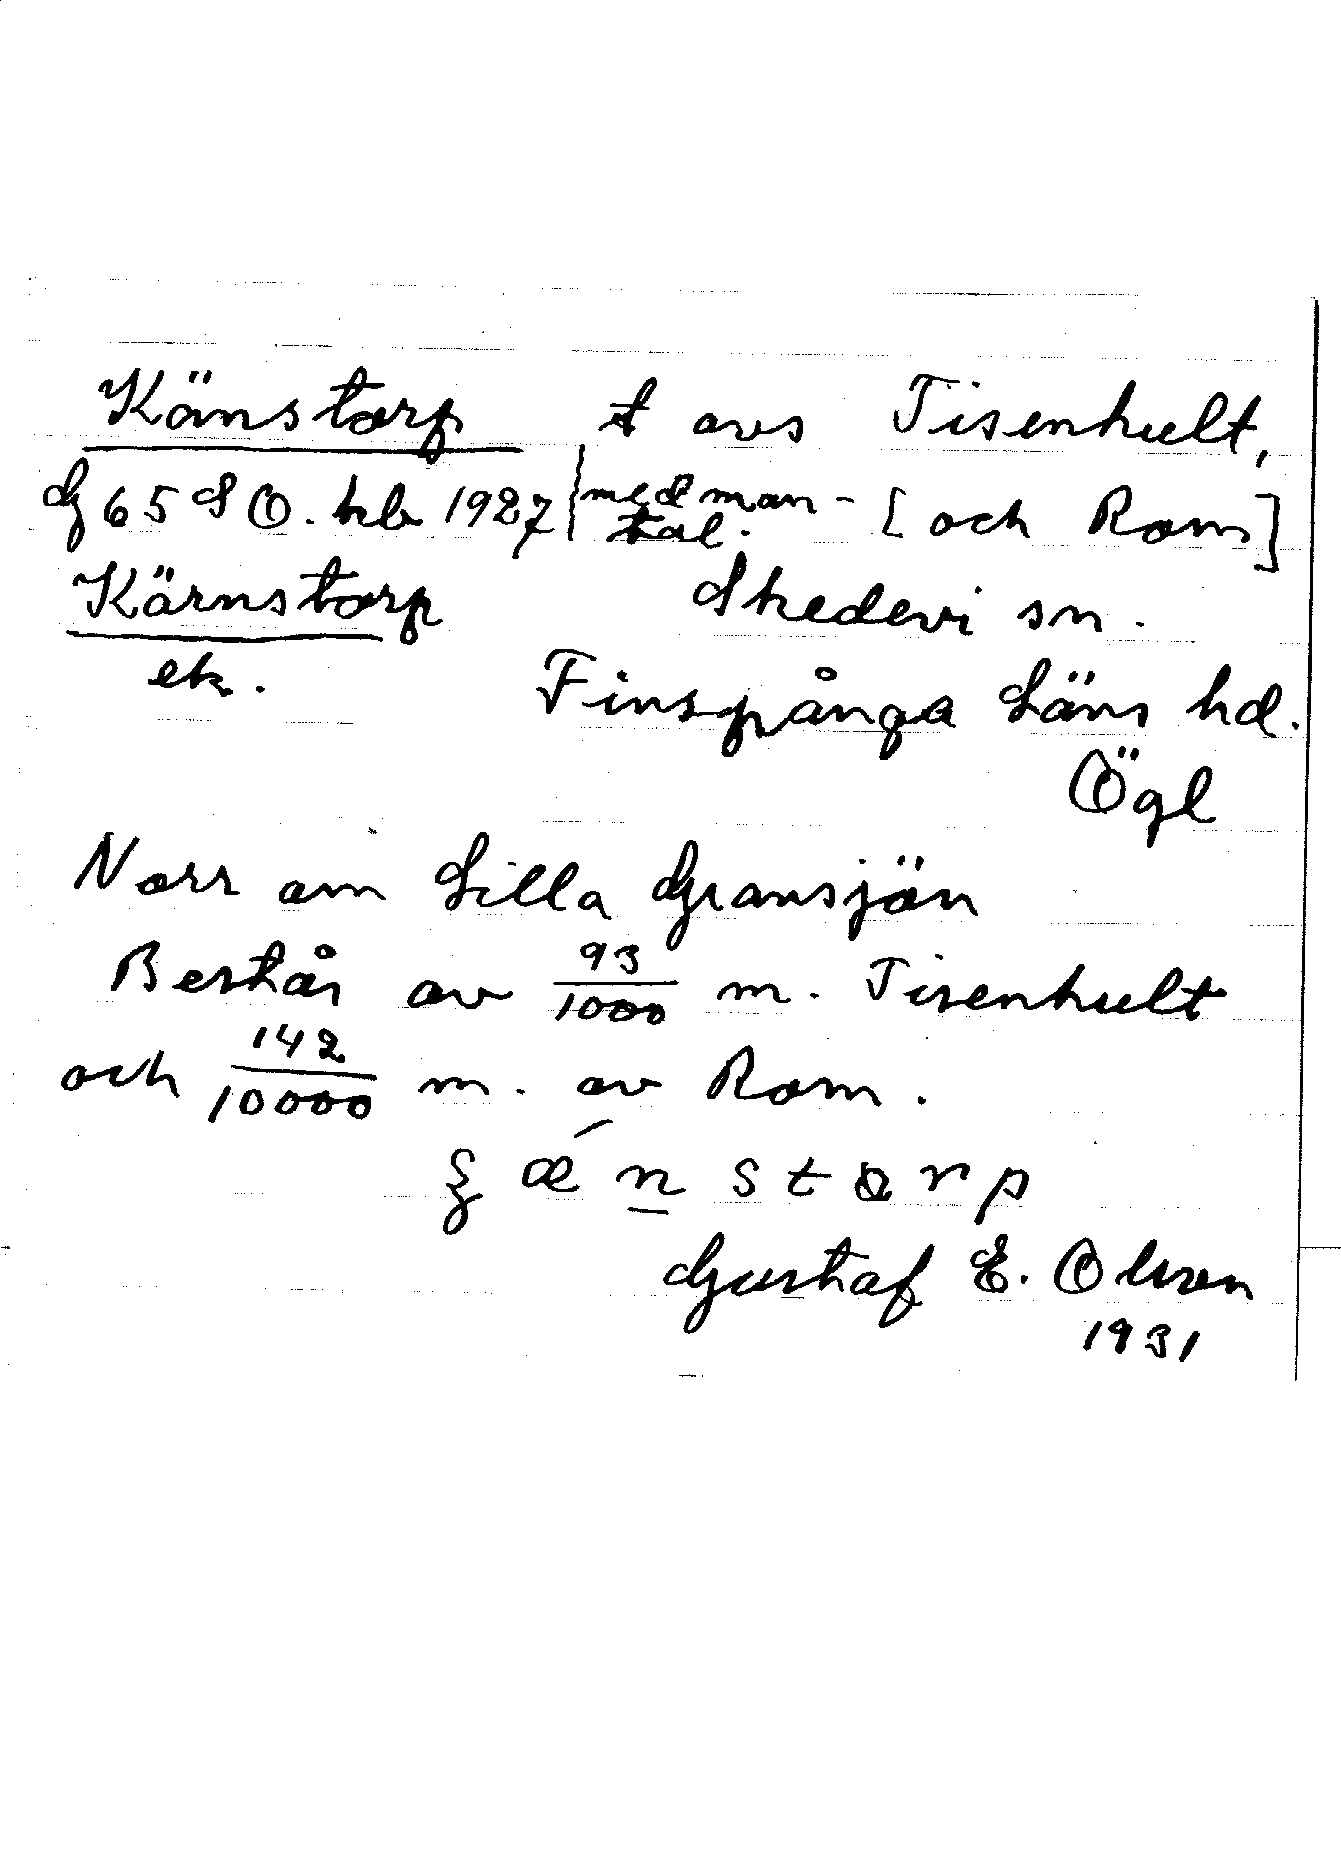 Känstorp t avs Tisenhult,
G 65 S O. hb 1927 med man-
tal. [och Rom]
Kärnstorp Skedevi sn.
ek. Finspånga Läns hd.
Ögl
Norr om Lilla Gransjön
Består av 93/1000 m. Tisenhult
och 142/10000 m. av Rom.
n s t o r p
Gustaf E. Olsson
1931